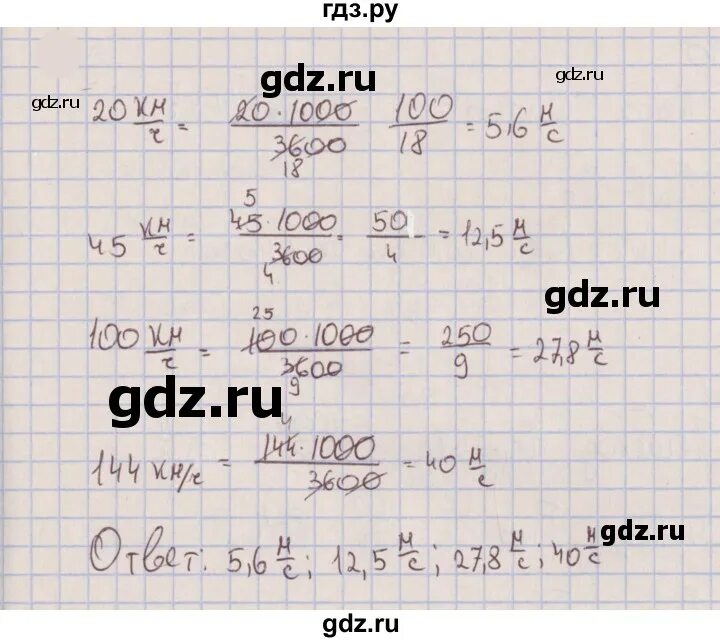 гдз.ру
gdz.ru gdz.ru gdz.ru
20 км/ч = 20·1000/3600 18 100/18 = 5,6 м/с
45 км/ч = 5 45·1000/3600 4 = 50/4 = 12,5 м/с
gdz.ru
100 км/ч = 25 100·1000/3600 9 = 250/9 = 27,8 м/с
gdz.ru
144 км/ч = 4 144·1000/3600 = 40 м/с
gdz.ru
Ответ: 5,6 м/с; 12,5 м/с; 27,8 м/с; 40 м/с
gdz.ru